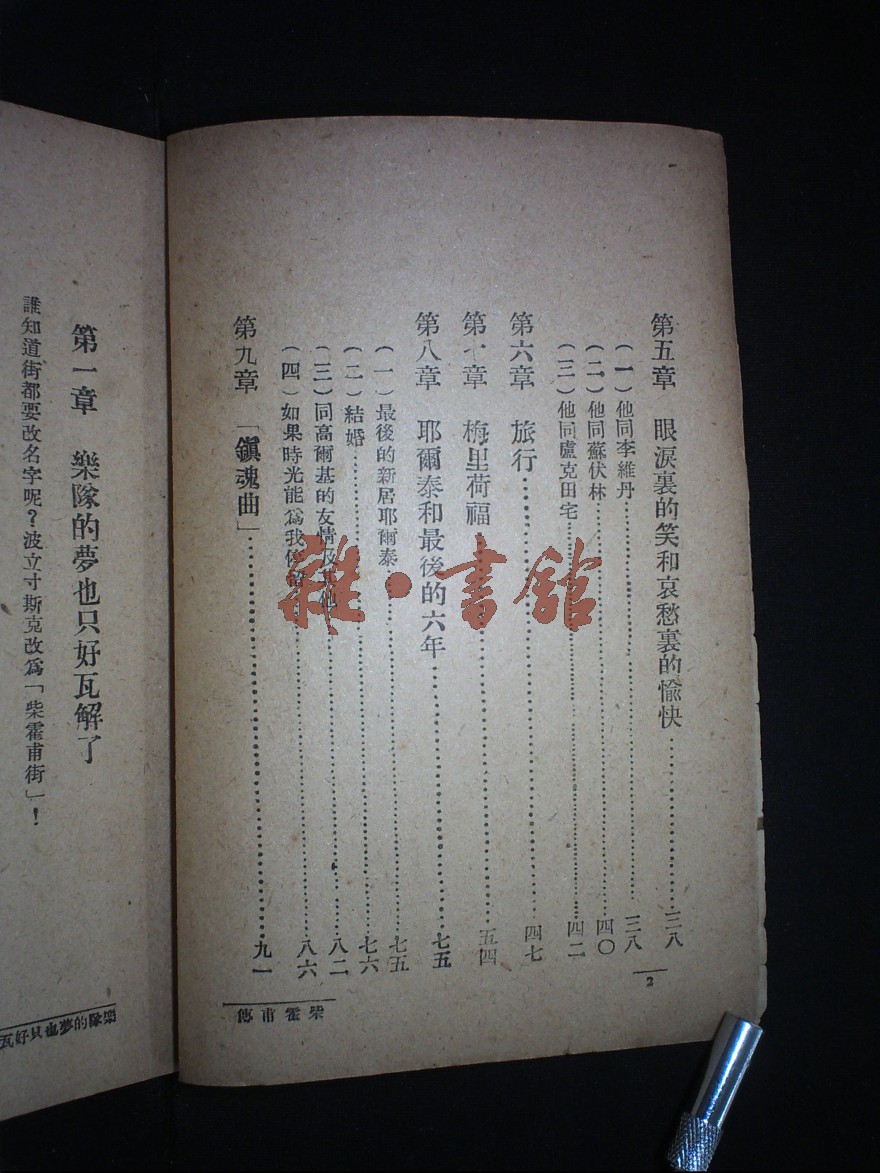 第五章 眼淚裏的笑和哀愁裏的愉快……三八
(一)他同李維丹……三八
(二)他同蘇伏林……四〇
(三)他同盧克田宅……四二
第六章 旅行……四七
第七章 梅里荷福……五四
第八章 耶爾泰和最後的六年……七五
(一)最後的新居耶爾泰……七五
(二)結婚……七六
(三)同高爾基的友情及其他……八二
(四)如果時光能爲我……八六
第九章 「鎭魂曲」……九一
2
柴霍甫傳
雜·書館
第一章 樂隊的夢也只好瓦解了
誰知道街都要改名字呢？波立寸斯克改爲「柴霍甫街」！
樂隊的夢也只好瓦